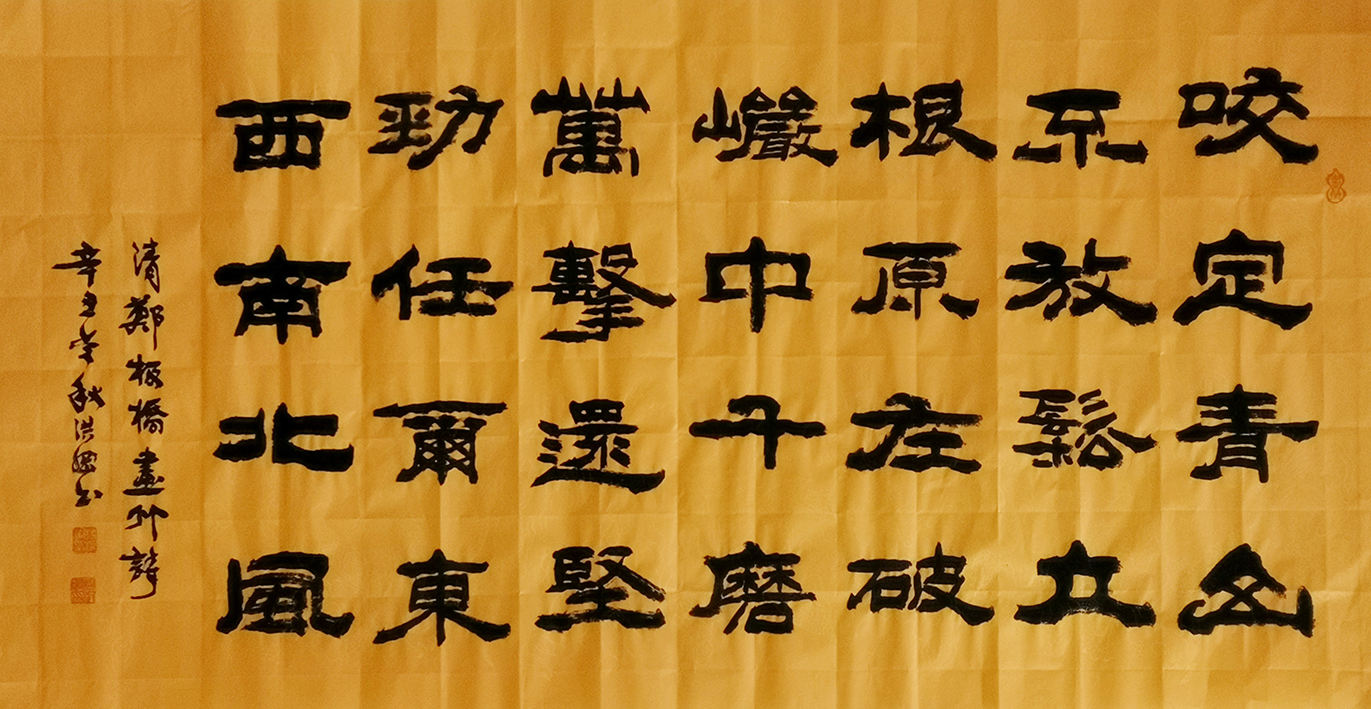 咬定青山
不放鬆立
根原在破
巖中千磨
萬擊還堅
勁任爾東
西南北風
清鄭板橋畫竹詩
辛丑秋洪书